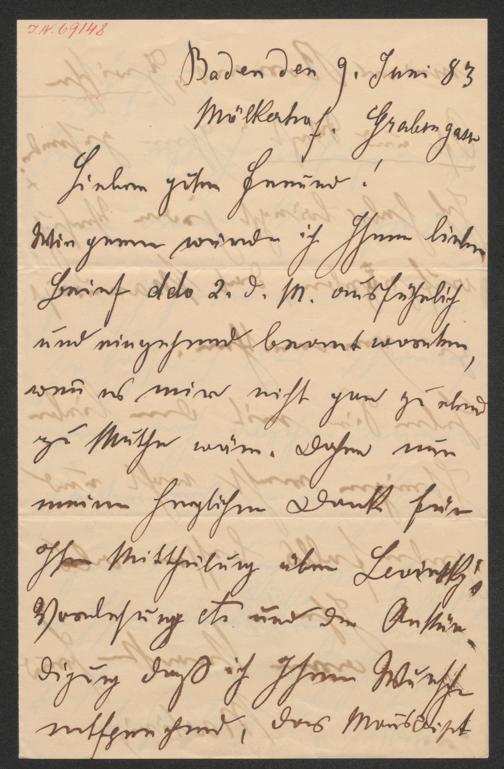 I.N. 69148
Baden den 9. Juni 83
Mölkerhof. Grabengasse
Lieber guter Freund!
Wie gerne würde ich Ihren lieben
Brief ddo 2. d. M. ausführlich
und eingehend beantworten,
wenn es mir nicht gar zu elend
zu Muthe wäre. Daher nur
meinen herzlichen Dank für
Ihre Mittheilung über Lewinsky's
Vorlesung etc. und die Ankün-
digung daß ich Ihrem Wunsche
entsprechend, das Manuscript